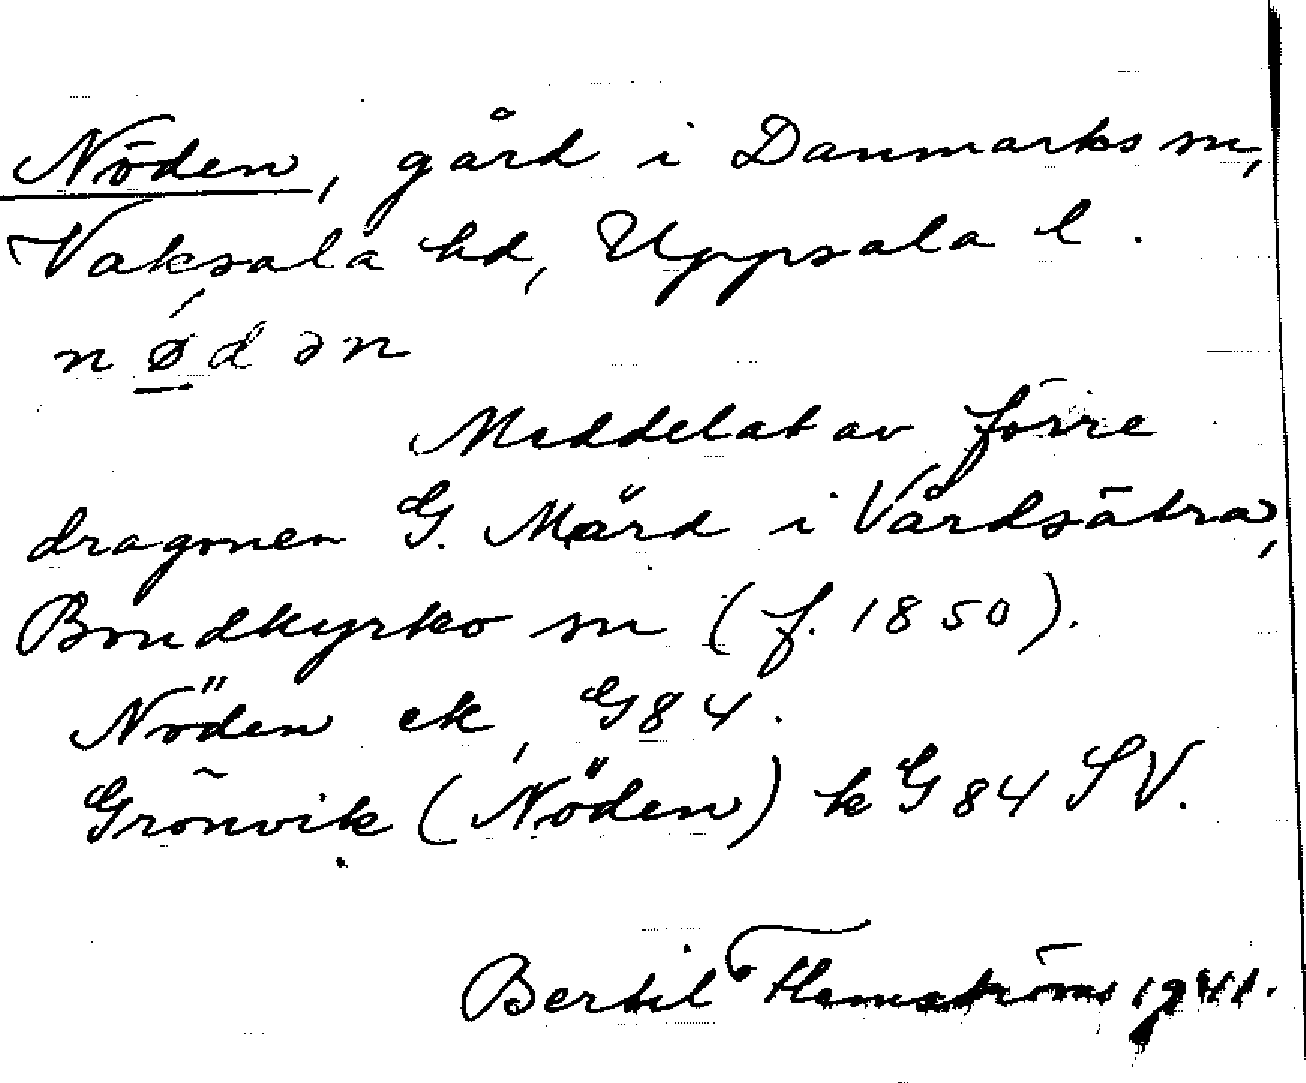 Nöden, gård i Danmarks sn,
Vaksala hd, Uppsala l.
nǿdən
Meddelat av förre
dragonen G. Märd i Vårdsätra,
Bondkyrko sn (f. 1850).
Nöden ek, G84.
Grönvik (Nöden) k G84 SV.
Bertil Flemström 1941.